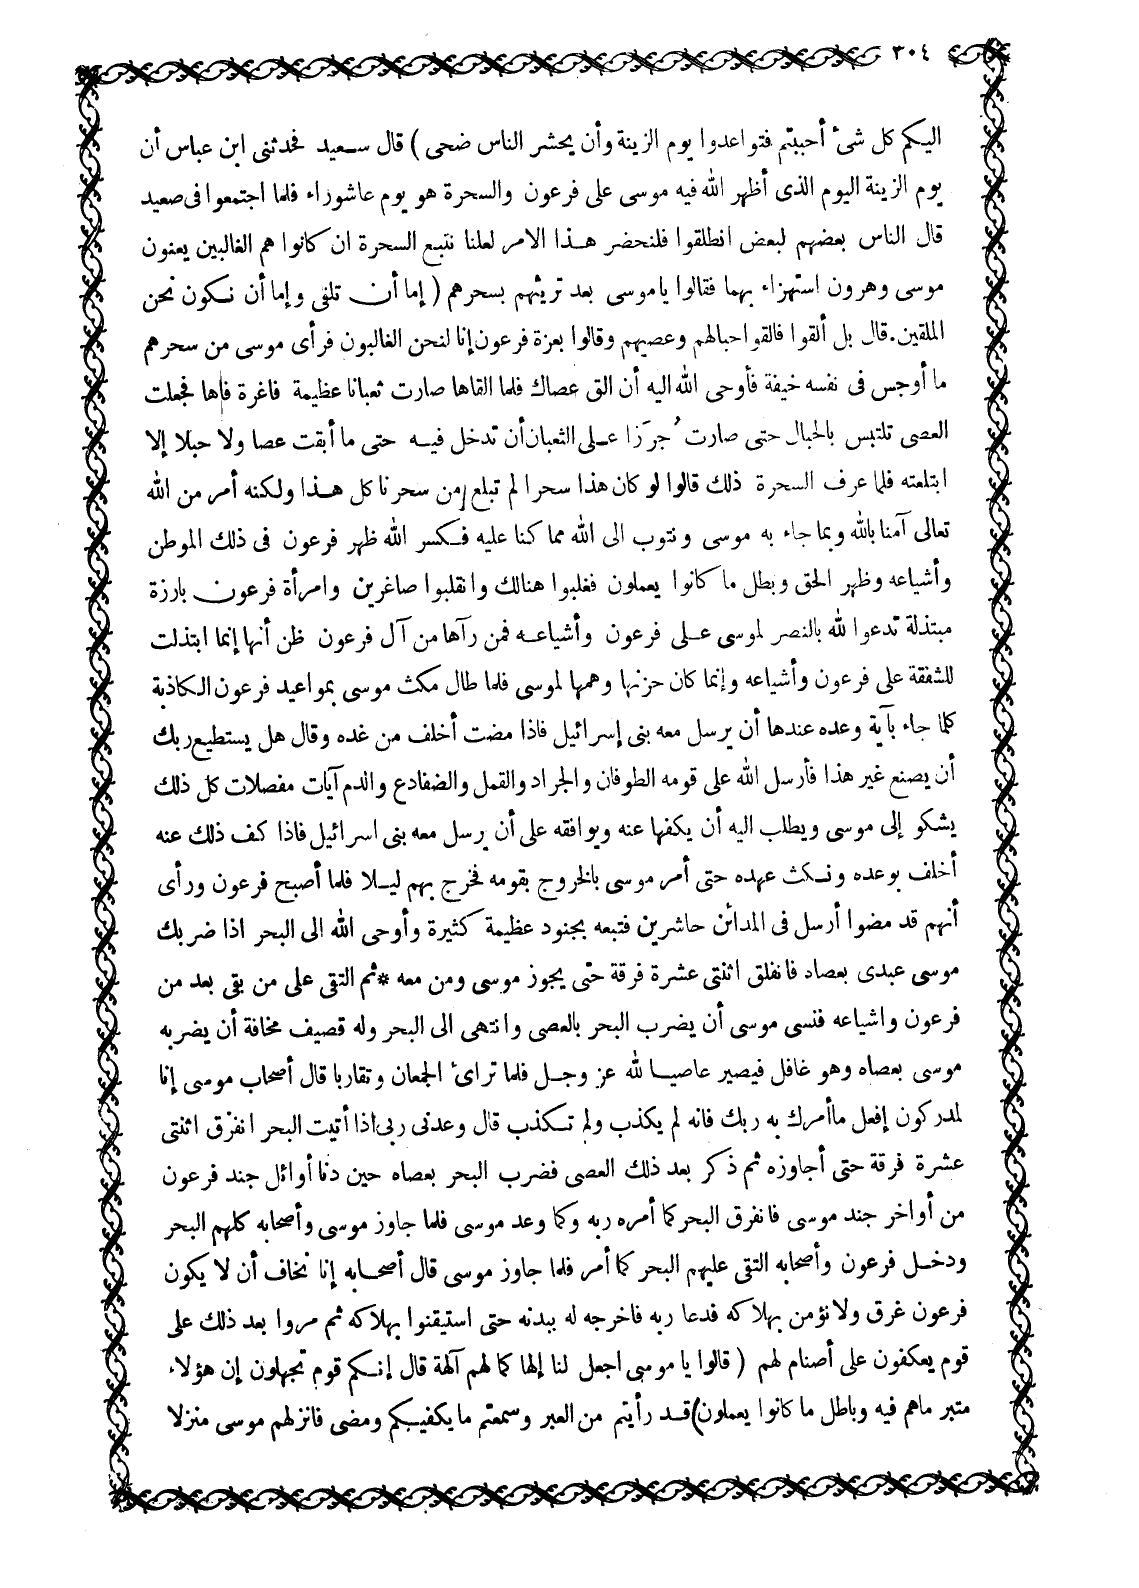 ٣٠٤
اليكم كل شئ أحببتم فتواعدوا يوم الزينة وأن يحشر الناس ضحى ) قال سعيد فحدثنى ابن عباس أن
يوم الزينة اليوم الذى أظهر الله فيه موسى على فرعون والسحرة هو يوم عاشوراء فلما اجتمعوا فى صعيد
قال الناس بعضهم لبعض انطلقوا فلنحضر هذا الامر لعلنا نتبع السحرة ان كانوا هم الغالبين يعنون
موسى وهرون استهزاء بهما فقالوا ياموسى بعد تريثهم بسحرهم ( إما أن تلقى وإما أن نكون نحن
الملقين.قال بل ألقوا فالقوا حبالهم وعصيهم وقالوا بعزة فرعون إنا لنحن الغالبون فرأى موسى من سحرهم
ما أوجس فى نفسه خيفة فأوحى الله اليه أن الق عصاك فلما القاها صارت ثعبانا عظيمة فاغرة فاها فجعلت
العصى تلتبس بالحبال حتى صارت جُرَزا على الثعبان أن تدخل فيه حتى ما أبقت عصا ولا حبلا إلا
ابتلعته فلما عرف السحرة ذلك قالوا لو كان هذا سحرا لم تبلع من سحرنا كل هذا ولكنه أمر من الله
تعالى آمنا بالله وبما جاء به موسى ونتوب الى الله مما كنا عليه فكسر الله ظهر فرعون فى ذلك الموطن
وأشياعه وظهر الحق وبطل ما كانوا يعملون فغلبوا هنالك وانقلبوا صاغرين وامرأة فرعون بارزة
مبتذلة تدعوا لله بالنصر لموسى على فرعون وأشياعه فمن رآها من آل فرعون ظن أنها إنما ابتذلت
للشفقة على فرعون وأشياعه وإنما كان حزنها وهمها لموسى فلما طال مكث موسى بمواعيد فرعون الكاذبة
كلما جاء بآية وعده عندها أن يرسل معه بنى إسرائيل فاذا مضت أخلف من غده وقال هل يستطيع ربك
أن يصنع غير هذا فأرسل الله على قومه الطوفان والجراد والقمل والضفادع والدم آيات مفصلات كل ذلك
يشكو إلى موسى ويطلب اليه أن يكفها عنه ويوافقه على أن يرسل معه بنى اسرائيل فاذا كف ذلك عنه
أخلف بوعده ونكث عهده حتى أمر موسى بالخروج بقومه فخرج بهم ليلا فلما أصبح فرعون ورأى
أنهم قد مضوا أرسل فى المدائن حاشرين فتبعه بجنود عظيمة كثيرة وأوحى الله الى البحر اذا ضربك
موسى عبدى بعصاد فانفلق اثنتى عشرة فرقة حتى يجوز موسى ومن معه *ثم التقى على من بقى بعد من
فرعون واشياعه فنسى موسى أن يضرب البحر بالعصى وانتهى الى البحر وله قصيف مخافة أن يضربه
موسى بعصاه وهو غافل فيصير عاصيا لله عز وجل فلما ترائ الجمعان وتقاربا قال أصحاب موسى إنا
لمدركون إفعل ماأمرك به ربك فانه لم يكذب ولم تكذب قال وعدنى ربى اذا أتيت البحر انفرق اثنتى
عشرة فرقة حتى أجاوزه ثم ذكر بعد ذلك العصى فضرب البحر بعصاه حين دنا أوائل جند فرعون
من أواخر جند موسى فانفرق البحر كما أمره ربه وكما وعد موسى فلما جاوز موسى وأصحابه كلهم البحر
ودخل فرعون وأصحابه التقى عليهم البحر كما أمر فلما جاوز موسى قال أصحابه إنا نخاف أن لا يكون
فرعون غرق ولا نؤمن بهلاكه فدعا ربه فاخرجه له ببدنه حتى استيقنوا بهلاكه ثم مروا بعد ذلك على
قوم يعكفون على أصنام لهم ( قالوا يا موسى اجعل لنا إلها كما لهم آلهة قال إنكم قوم تجهلون إن هؤلاء
متبر ماهم فيه وباطل ما كانوا يعملون) قد رأيتم من العبر وسمعتم ما يكفيكم ومضى فانزلهم موسى منزلا